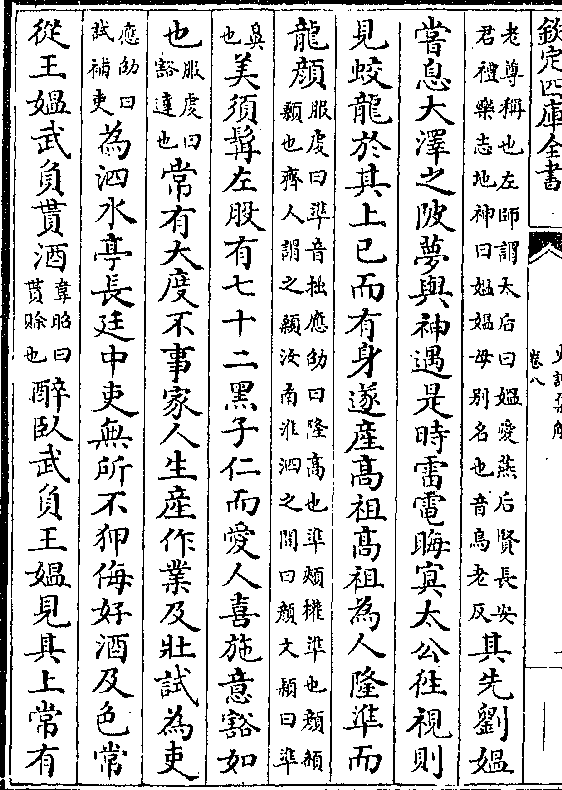 欽定四庫全書
卷八
老尊稱也左師謂太后曰媼愛燕后賢長安君禮樂志地神曰媪媪母别名也音烏老反其先劉媼
嘗息大澤之陂夢與神遇是時雷電晦冥太公往視則
見蛟龍於其上已而有身遂產高祖高祖為人隆準而
龍顔服虔曰準音拙應劭曰隆高也準頰權準也顔頟顙也齊人謂之顙汝南淮泗之間曰顔文穎曰準
鼻也美須髯左股有七十二黑子仁而愛人喜施意豁如
也服虔曰豁達也常有大度不事家人生產作業及壯試為吏
應劭曰試補吏為泗水亭長廷中吏無所不狎侮好酒及色常
從王媼武負貰酒韋昭曰貰賒也醉臥武負王媼見其上常有